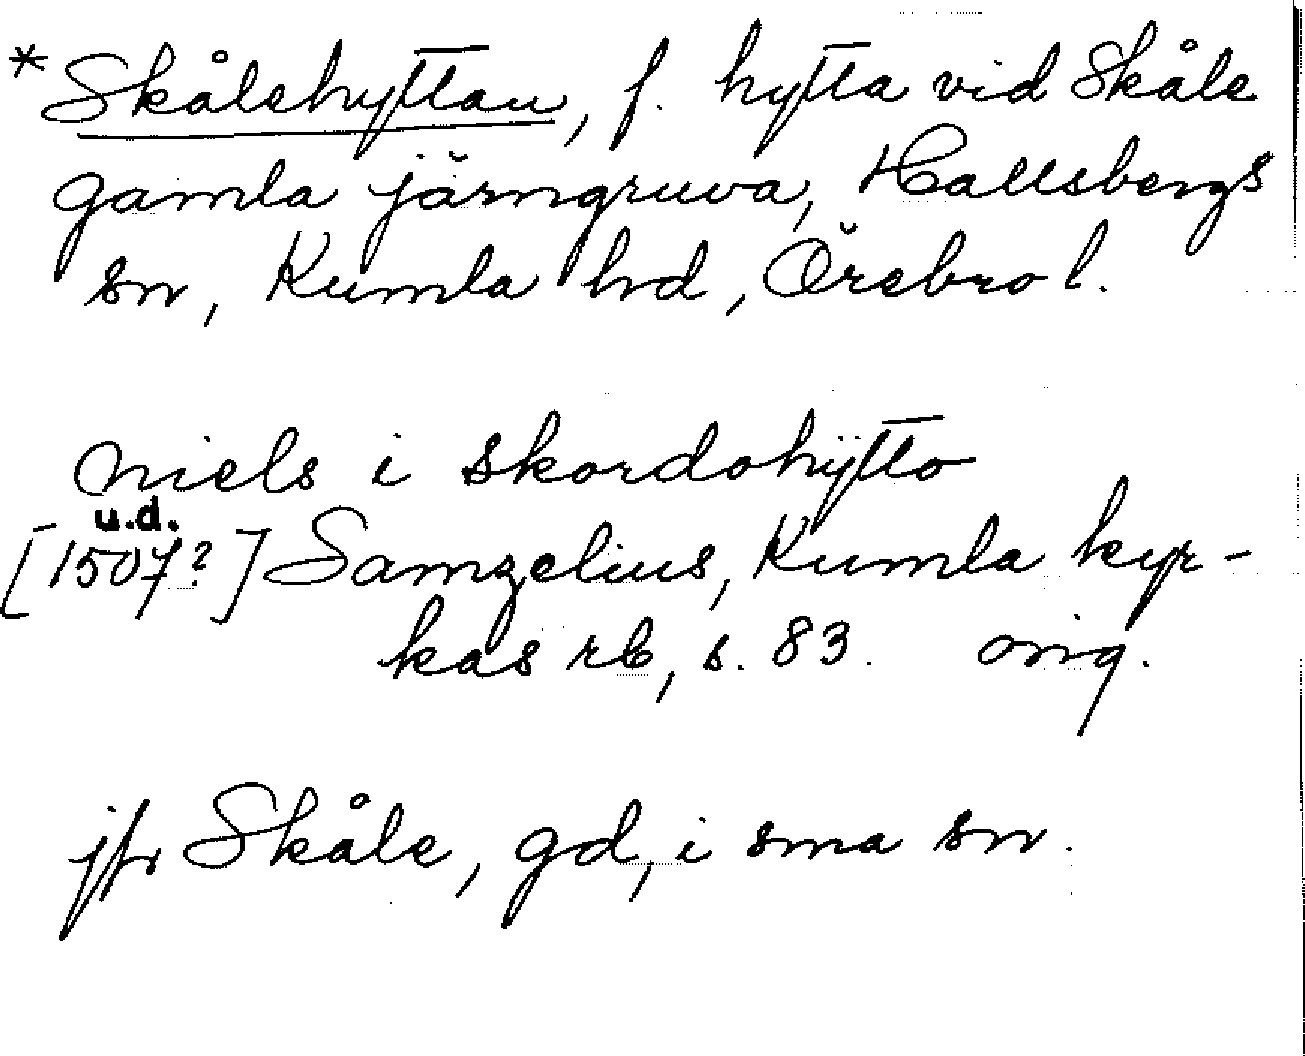 *Skålehyttan, f. hytta vid Skåle
gamla järngruva, Hallsbergs
sn, Kumla hd, Örebro l.
niels i skordohÿtto
u.d.
[1507?] Samzelius, Kumla kyr-
kas rb, s. 83. orig.
jfr Skåle, gd, i sma sn.